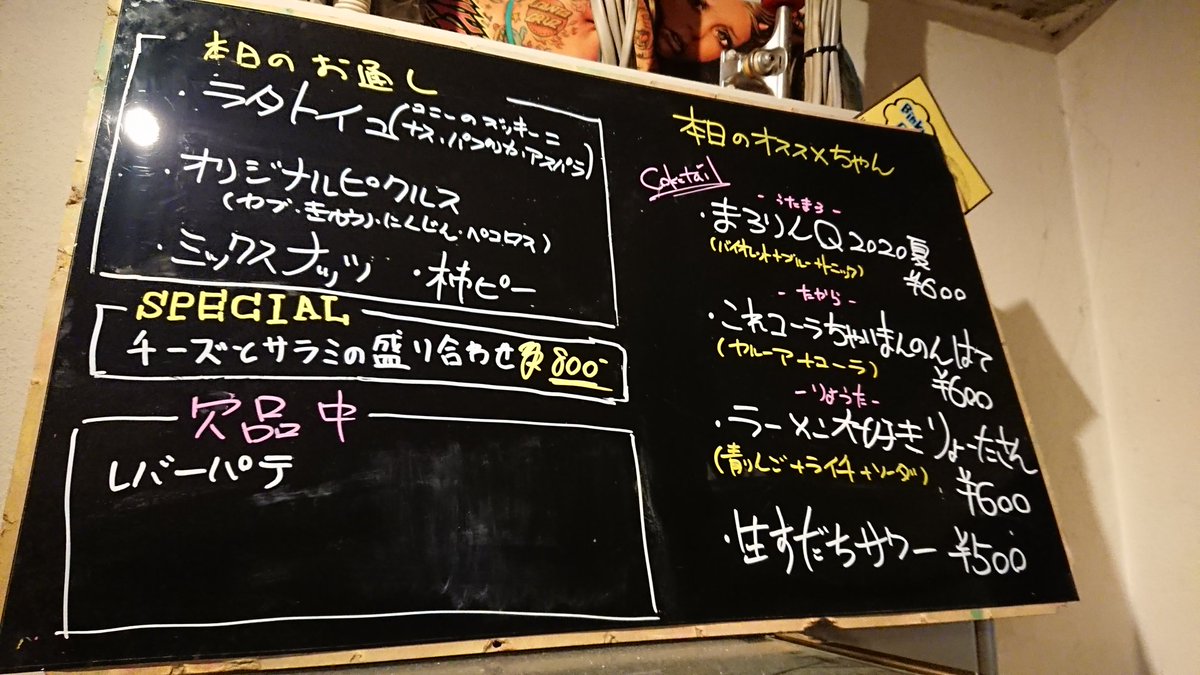 本日のお通し
・ラタトイユ(ユニーのズッキーニ
ナス、パプリカ、アスパラ)
・オリジナルピクルス
(カブ・きゅうり・にんじん・ペコロス)
・ミックスナッツ ・柿ピー
SPECIAL
チーズとサラミの盛り合わせ 800-
欠品中
レバーパテ
本日のオススメちゃん
Cocktail
- うたまろ -
・まろりんQ2020夏
(バイオレット+ブルー+トニック)
¥600
- たから -
・これコーラちゃいまんのんはて
(カルーア+コーラ)
¥600
- りょうた -
・ラーメン大好きりょーたさん
(青りんご+ライチ+ソーダ)
¥600
・生すだちサワー ¥500